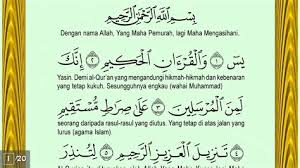 بِسْمِ اللَّهِ الرَّحْمَٰنِ الرَّحِيمِ
Dengan nama Allah, Yang Maha Pemurah, lagi Maha Mengasihani.
يسٓ ﴿١﴾ وَالْقُرْءَانِ الْحَكِيمِ ﴿٢﴾ إِنَّكَ
Yasin. Demi al-Qur'an yang mengandungi hikmah-hikmah dan kebenaran
yang tetap kukuh. Sesungguhnya engkau (wahai Muhammad)
لَمِنَ الْمُرْسَلِينَ ﴿٣﴾ عَلَىٰ صِرَاطٍ مُّسْتَقِيمٍ
seorang daripada rasul-rasul yang diutus. Yang tetap di atas jalan yang
lurus (agama Islam)
﴿٤﴾ تَنزِيلَ الْعَزِيزِ الرَّحِيمِ ﴿٥﴾
1 / 20